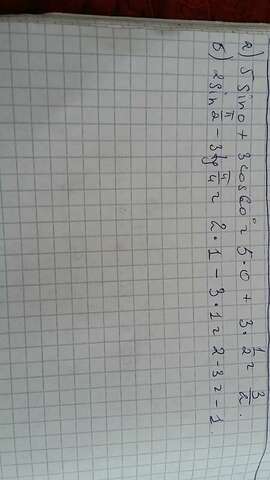 а) 5 sin 0 + 3 cos 60° = 5·0 + 3·1/2 = 3/2.
б) 2 sin π/2 - 3 tg π/4 = 2·1 - 3·1 = 2-3 = -1.